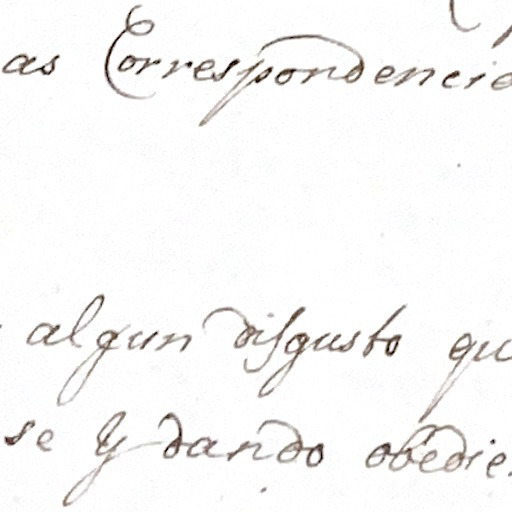 as Correspondencie
algun disgusto qu
se y dando obedie